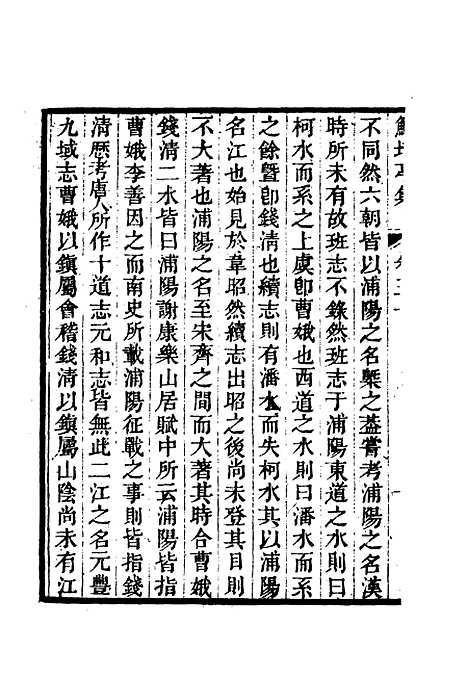 不同然六朝皆以浦陽之名槩之蓋嘗考浦陽之名漢
時所未有故班志不錄然班志于浦陽東道之水則曰
柯水而系之上虞卽曹娥也西道之水則曰潘水而系
之餘曁卽錢淸也續志則有潘水而失柯水其以浦陽
名江也始見於韋昭然續志出昭之後尚未登其目則
不大著也浦陽之名至宋齊之間而大著其時合曹娥
錢淸二水皆曰浦陽謝康樂山居賦中所云浦陽皆指
曹娥李善因之而南史所載浦陽征戰之事則皆指錢
淸歷考唐人所作十道志元和志皆無此二江之名元豐
九域志曹娥以鎭屬會稽錢淸以鎭屬山陰尚未有江